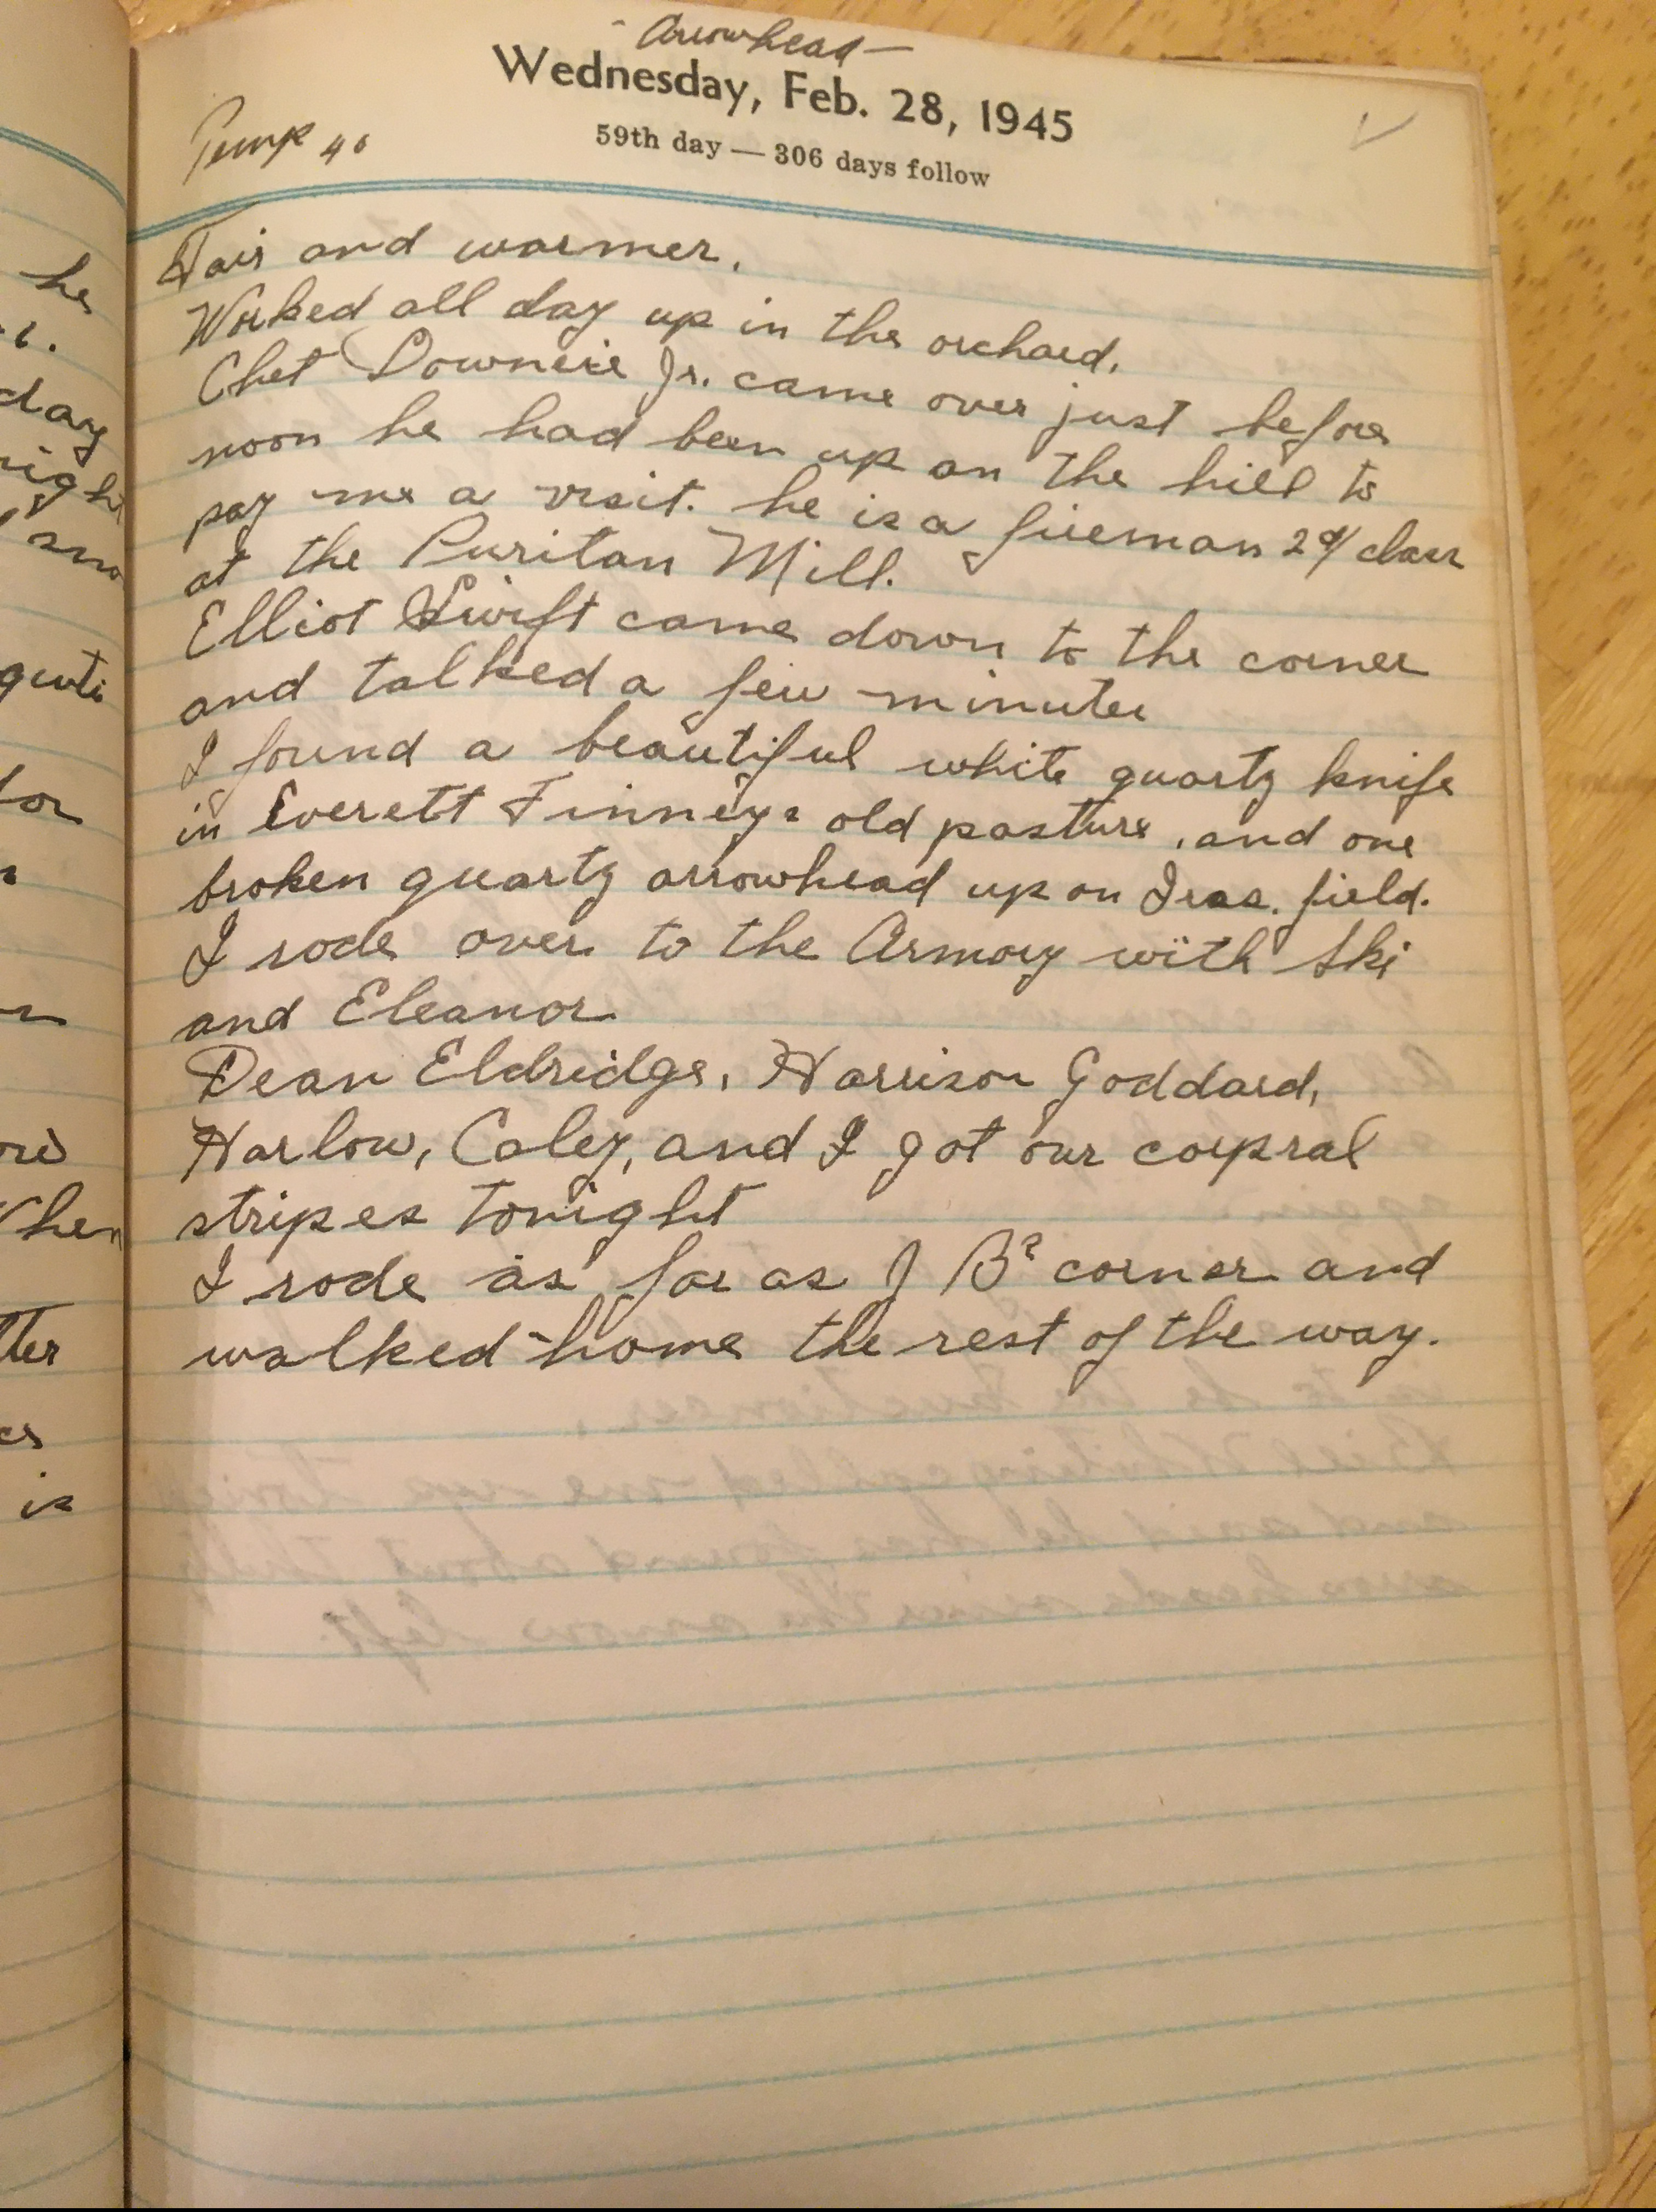 - Arrowhead -
Wednesday, Feb. 28, 1945
59th day — 306 days follow
Temp 40
Fair and warmer.
Worked all day up in the orchard.
Chet Downeie Jr. came over just before
noon he had been up on the hill to
pay me a visit. he is a fireman 2d/ class
at the Puritan Mill.
Elliot Swift came down to the corner
and talked a few minutes
I found a beautiful white quartz knife
in Everett Finneys old pasture, and one
broken quartz arrowhead up on Iras. field.
I rode over to the Armory with Ski
and Eleanor.
Dean Eldridge, Harrison Goddard,
Harlow, Caley, and I got our corpral
stripes tonight
I rode as far as J Bs corner and
walked home the rest of the way.
he
day
night